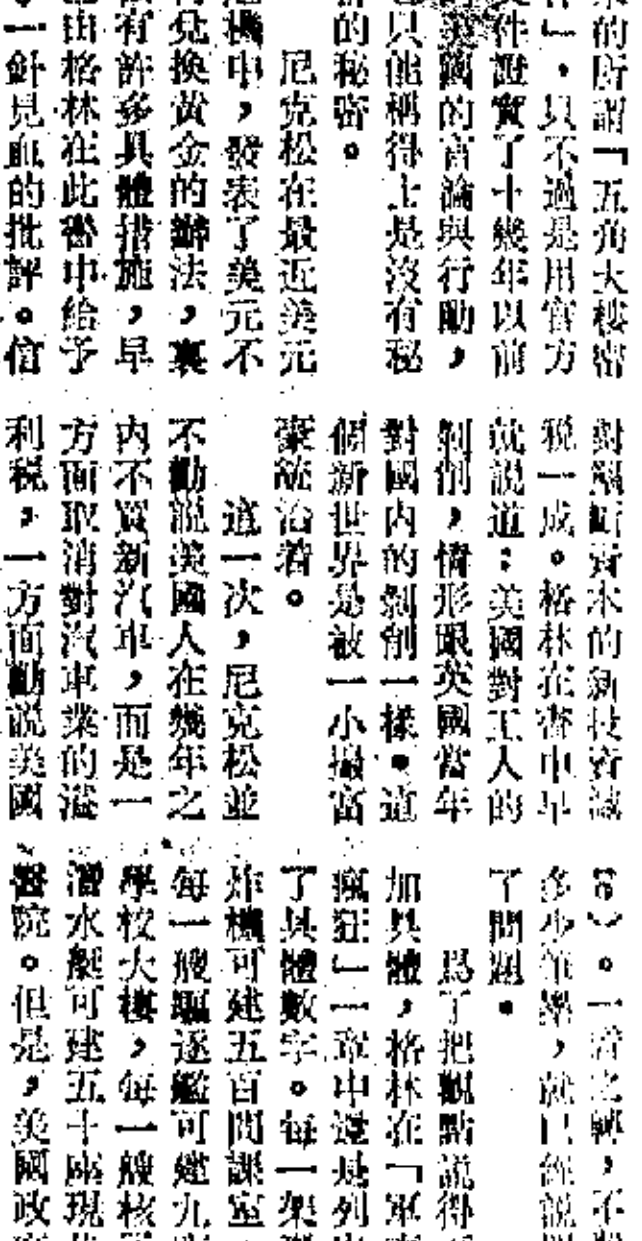 的所謂「五角大樓密
件」，只不過是用官方
件證實了十幾年以前
國的言論與行動，
也只能稱得上是沒有秘
的秘密。
尼克松在最近美元
危機中，發表了美元不
兌換黃金的辦法，裏
有許多具體措施，早
由格林在此書中給予
一針見血的批評。信
對壟斷資本的新投資減
稅一成。格林在書中早
就說道：美國對工人的
剝削，情形跟英國當年
對國內的剝削一樣。這
個新世界是被一小撮富
豪統治着。
這一次，尼克松並
不勸說美國人在幾年之
內不買新汽車，而是一
方面取消對汽車業的溢
利稅，一方面勸說美國
。一字之轉，不
多少筆墨，就已經說
了問題。
爲了把觀點說得
加具體，格林在「軍
瘋狂」一章中還是列
了具體數字。每一架
炸機可建五百間課室
每一艘驅逐艦可建九
學校大樓，每一艘核
潛水艇可建五十座現
醫院。但是，美國政